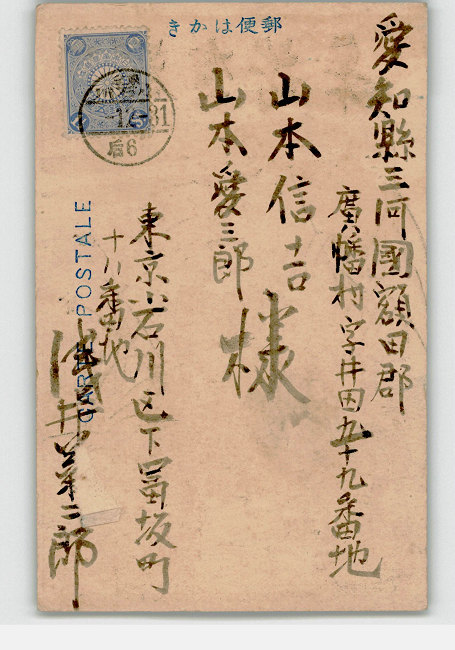 郵便はかき
愛知縣三河國額田郡
廣幡村字井田五十九番地
山本信吉
山本愛三郎
様
東京小石川区下冨坂町
十八番地
井 第二郎
CARTE POSTALE
-1.2-31
后6